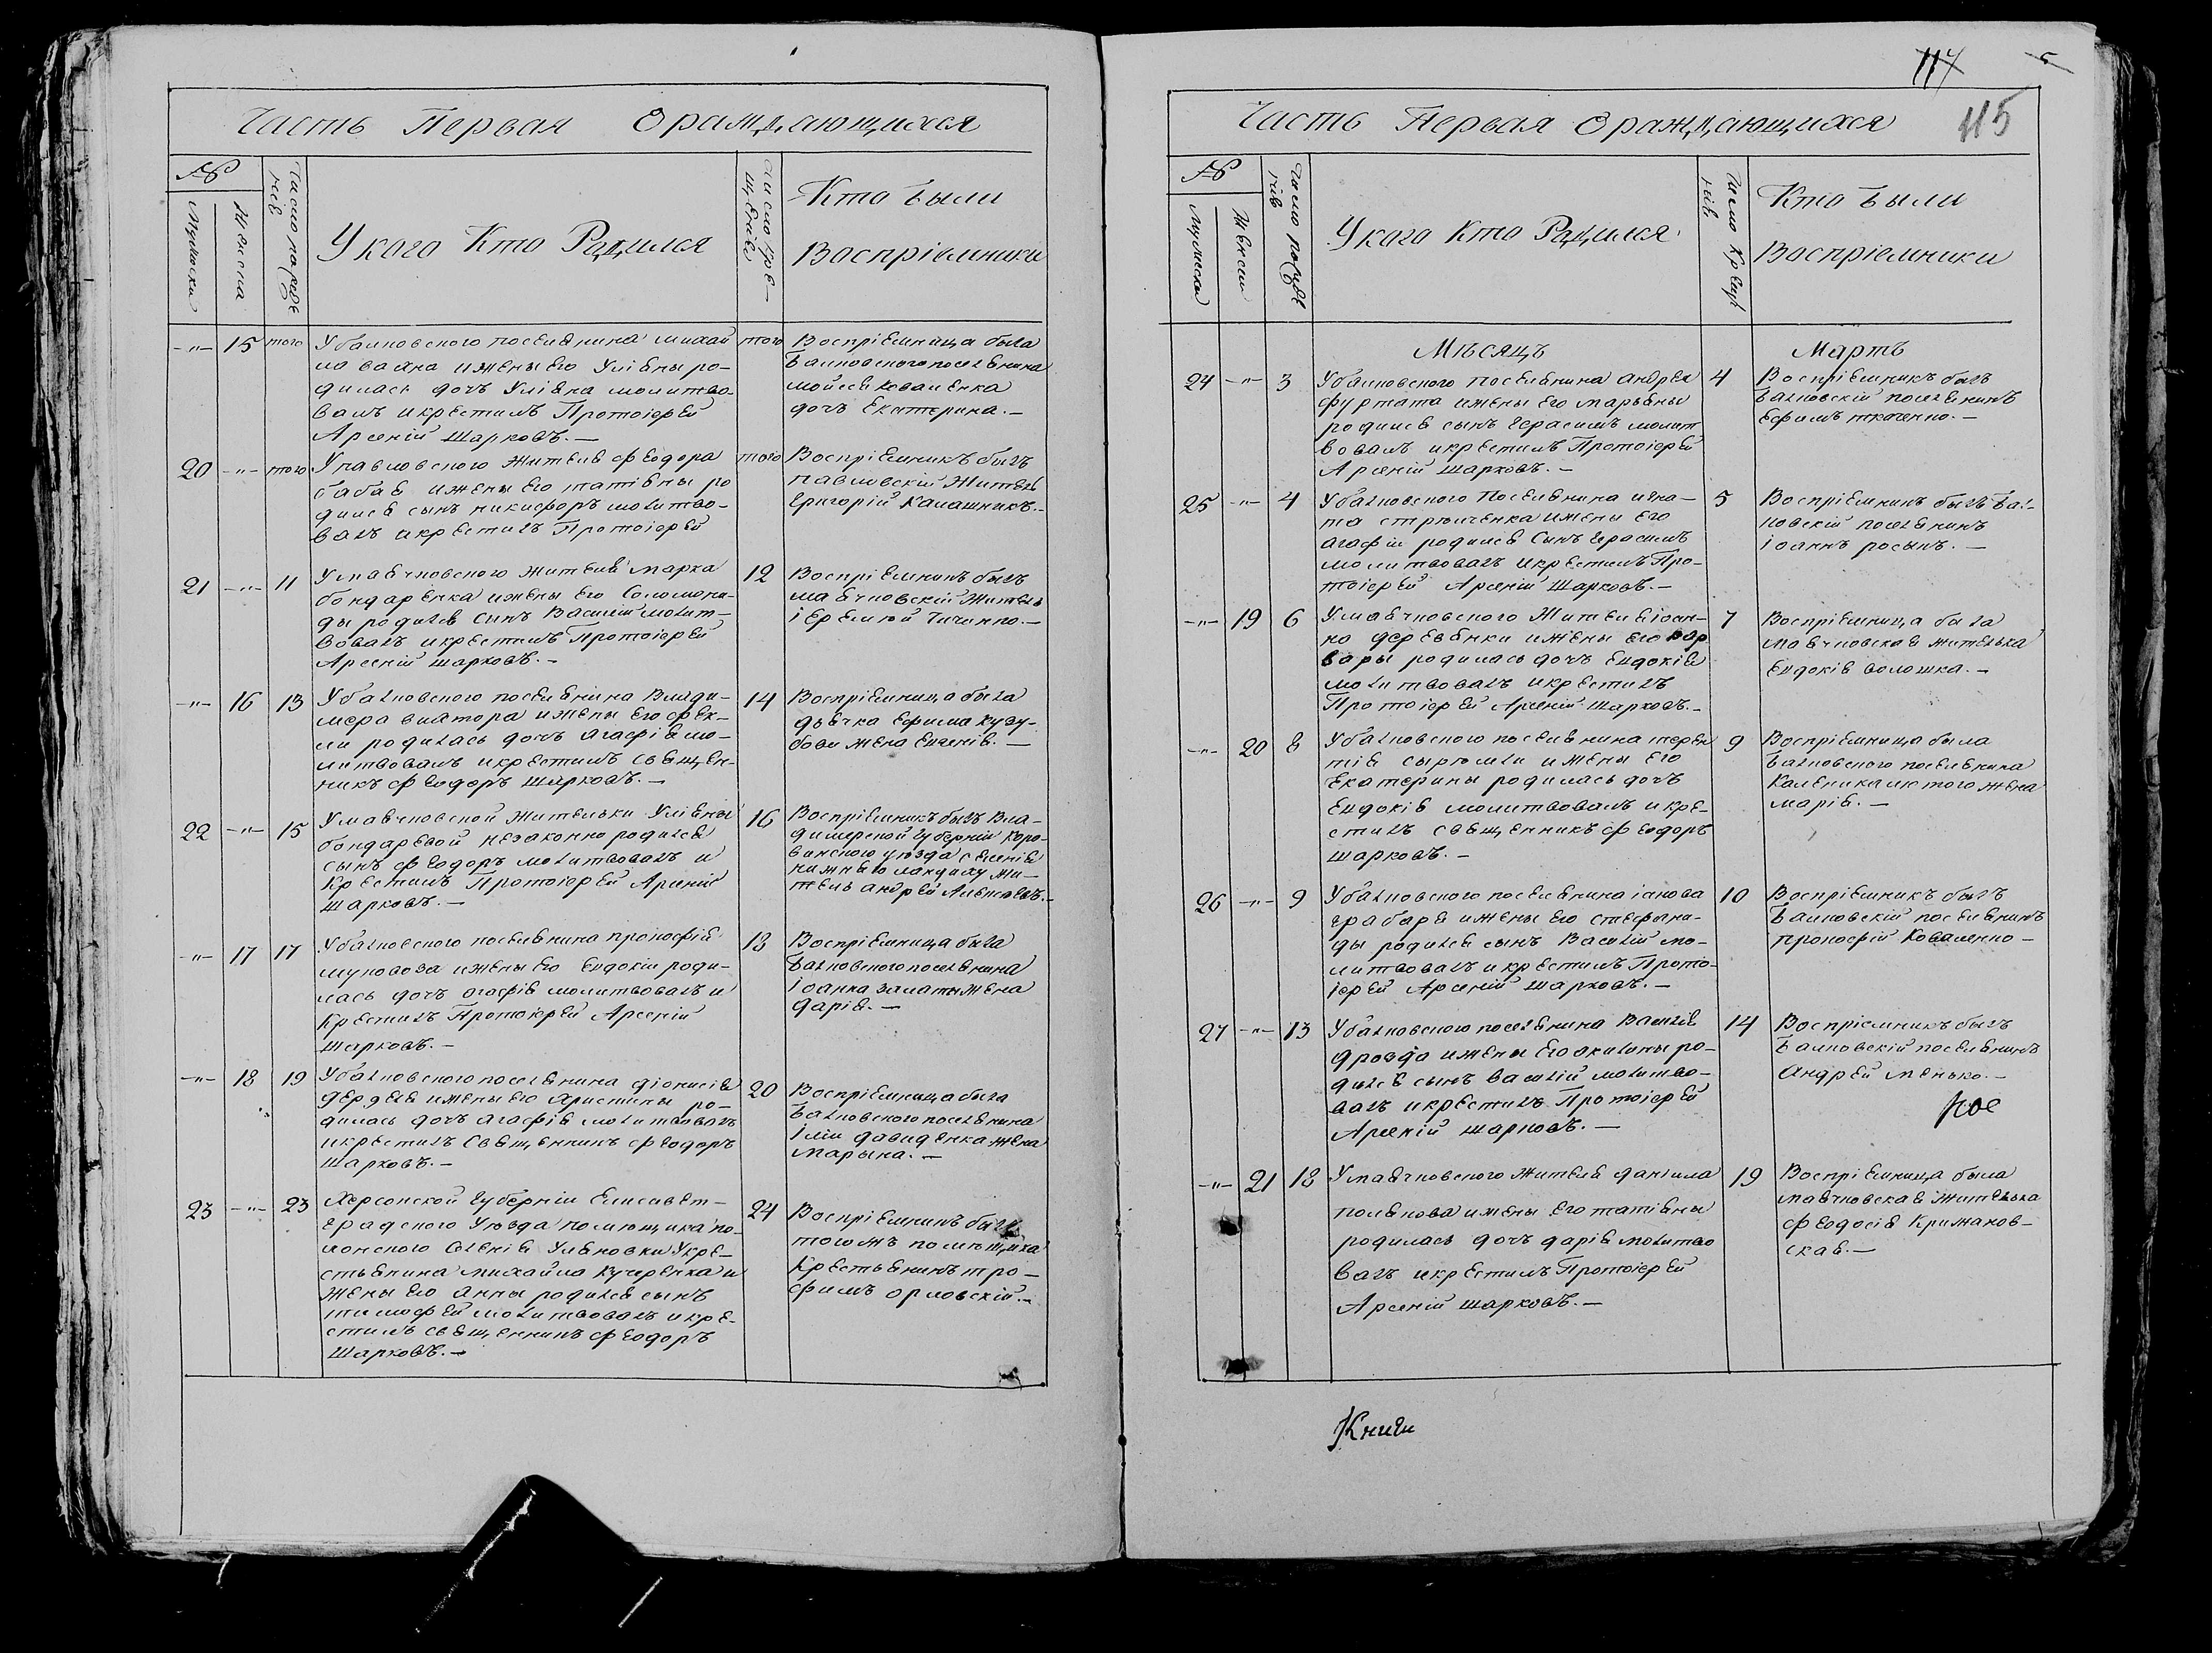 Часть Первая Ораждающихся
№
Мужеска
Женска
Число рожде
нія
У кого Кто Родился
Число кре-
щенія
Кто были
Воспріемники
-"- 15 того
У балковского поселянина михай
ла ваяна ижены его Уліяны ро-
дилась дочь Уліяна молитво-
валъ икрестилъ Протоіерей
Арсеній Шарковъ.-
того
Воспріемница была
балковского поселянина
мойсея коваленка
дочь Екатерина.-
20 -"- того
У павловского жителя феодора
бабае ижены его татіяны ро
дился сынъ никифоръ молитво-
валъ икрестилъ Протоіерей
того
Воспріемникъ былъ
павловскій житель
григорій Калашникъ.-
21 -"- 11
У маячковского жителя марка
бондаренка ижены его Соломони-
ды родился сынъ Василій молит-
вовалъ икрестилъ Протоіерей
Арсеній шарковъ.-
12
Воспріемникъ былъ
маячковскій житель
іеремій
-"- 16 13
У балковского поселянина Влади-
мера виктора ижены его фек-
ли родилась дочь агафія мо-
литвовалъ икрестилъ священ-
никъ феодоръ шарковъ.-
14
Воспріемница была
дьячка ефима кузу-
бови жена Евгенія.-
22 -"- 15
У маячковской жительки Уліяны
бондаревой незаконно родился
сынъ феодоръ молитвовалъ и
крестилъ Протоіерей Арсеній
шарковъ.-
16
Воспріемникъ былъ Вла-
димерской губерніи
уезда селенія
жи-
тель андрей Алексеевъ.-
-"- 17 17
У балковского поселянина прокофія
муковоза ижены его Евдокіи роди-
лась дочь агафія молитвовалъ и
Крестилъ Протоіерей Арсеній
шарковъ.-
18
Воспріемница была
балковского поселянина
іоанна жена
дарія.-
-"- 18 19
У балковского поселянина діонисія
ижены его Христины ро-
дилась дочь агафія молитвовалъ
икрестилъ Священникъ феодоръ
Шарковъ.-
20
Воспріемница была
балковского поселянина
іліи давиденка жена
Марьяна.-
23 -"- 23
Херсонской губерніи Елисавет-
градского Уезда помещика по-
лонского Селенія Уляновки Укре-
стьянина михайла кучеренка и
жены его анны родился сынъ
тимофей молитвовалъ икре-
стилъ священникъ феодоръ
шарковъ.-
24
Воспріемникъ былъ
тогожъ помещика
крестьянинъ тро-
фимъ орловскій.-
117
115
Часть Первая Ораждающихся
№
Мужеска
Женска
Число рожде
нія
У кого Кто Родился
Число Креще
нія
Кто были
Воспріемники
Месяцъ Мартъ
24 -"- 3
У балковского поселянина андрея
фуртата ижены его марьяны
родился сынъ герасимъ молит
вовалъ икрестилъ Протоіерей
Арсеній шарковъ.-
4
Воспріемникъ былъ
балковскій поселянинъ
Ефимъ ткаченко.-
25 -"- 4
У балковского поселянина игна-
та стрельченка ижены его
агафіи родился Сынъ герасимъ
молитвовалъ икрестилъ Про-
тоіерей Арсеній Шарковъ.-
5
Воспріемникъ былъ бал-
ковскій поселянинъ
іоаннъ росынъ.-
-"- 19 6
У маячковского жителя іоан-
на деревянки ижены его вар
вары родилась дочь Евдокія
молитвовалъ икрестилъ
Протоіерей Арсеній Шарковъ.-
7
Воспріемница была
маячковская жителька
Евдокія волошка.-
-"- 20 8
У балковского поселянина терен
тія ижены его
Екатерины родилась дочь
Евдокія молитвовалъ икре-
стилъ священникъ феодоръ
шарковъ.-
9
Воспріемница была
балковского поселянина
жена
марія.-
26 -"- 9
У балковского поселянина іакова
грабаря ижены его стефани-
ды родился сынъ Василій мо-
литвовалъ икрестилъ Прото-
іерей Арсеній шарковъ.-
10
Воспріемникъ былъ
балковскій поселянинъ
прокофій Коваленко-
27 -"- 13
У балковского поселянина Василія
дрозда ижены его акилины ро-
дился сынъ василій молитво-
валъ икрестилъ Протоіерей
Арсеній шарковъ.-
14
Воспріемникъ былъ
балковскій поселянинъ
андрей менько.-
-"- 21 18
У маячковского жителя данила
полякова ижены его татіяны
родилась дочь дарія молитво
валъ икрестилъ Протоіерей
Арсеній шарковъ.-
19
Воспріемница была
маячковская жителька
феодосія Крижанов-
ская.-
Книги